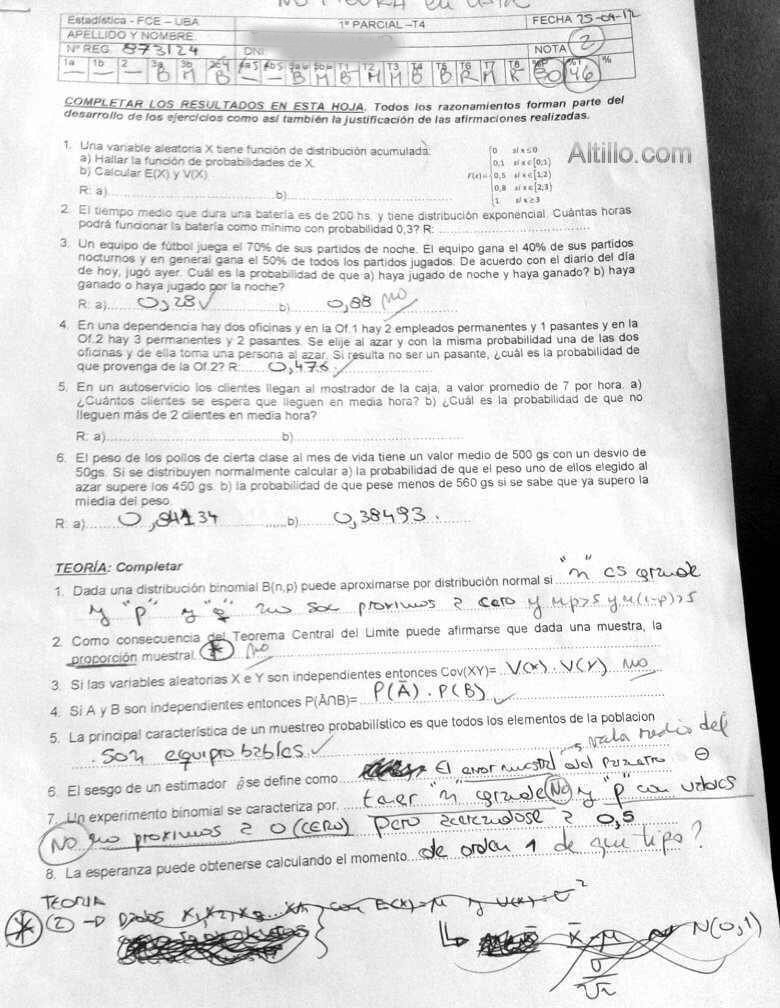 NO FIGURA en LISTA
Estadística - FCE – UBA 1º PARCIAL –T4 FECHA 25-04-12
APELLIDO Y NOMBRE
Nº REG. 873124 DNI: NOTA 2
1a 1b 2 3a 3b 4 T1 T2 T3 T4 T5 T6 T7 T8 %P %T %
B M B B M B M M B B R M R 30 46
COMPLETAR LOS RESULTADOS EN ESTA HOJA. Todos los razonamientos forman parte del
desarrollo de los ejercicios como así también la justificación de las afirmaciones realizadas.
Altillo.com
1. Una variable aleatoria X tiene función de distribución acumulada:
a) Hallar la función de probabilidades de X.
b) Calcular E(X) y V(X)
F(x)= 0 si x≤0
0,1 si x∈[0;1)
0,5 si x∈[1;2)
0,8 si x∈[2;3)
1 si x≥3
R: a) b)
2. El tiempo medio que dura una batería es de 200 hs. y tiene distribución exponencial. Cuántas horas
podrá funcionar la batería como mínimo con probabilidad 0,3? R:
3. Un equipo de fútbol juega el 70% de sus partidos de noche. El equipo gana el 40% de sus partidos
nocturnos y en general gana el 50% de todos los partidos jugados. De acuerdo con el diario del día
de hoy, jugó ayer. Cuál es la probabilidad de que a) haya jugado de noche y haya ganado? b) haya
ganado o haya jugado por la noche?
R: a) 0,28 ✓ b) 0,88 no
4. En una dependencia hay dos oficinas y en la Of.1 hay 2 empleados permanentes y 1 pasantes y en la
Of.2 hay 3 permanentes y 2 pasantes. Se elije al azar y con la misma probabilidad una de las dos
oficinas y de ella toma una persona al azar. Si resulta no ser un pasante, ¿cuál es la probabilidad de
que provenga de la Of.2? R: 0,476 ✓
5. En un autoservicio los clientes llegan al mostrador de la caja, a valor promedio de 7 por hora. a)
¿Cuántos clientes se espera que lleguen en media hora? b) ¿Cuál es la probabilidad de que no
lleguen más de 2 clientes en media hora?
R: a) b)
6. El peso de los pollos de cierta clase al mes de vida tiene un valor medio de 500 gs con un desvío de
50gs. Si se distribuyen normalmente calcular a) la probabilidad de que el peso uno de ellos elegido al
azar supere los 450 gs. b) la probabilidad de que pese menos de 560 gs si se sabe que ya supero la
miedia del peso.
R: a) 0,84134 b) 0,38493.
TEORÍA: Completar
1. Dada una distribución binomial B(n,p) puede aproximarse por distribución normal si "n" es grande
y "p" y "q" no son proximos a cero y n.p>5 y n(1-p)>5
2. Como consecuencia del Teorema Central del Limite puede afirmarse que dada una muestra, la
proporción muestral. * no
3. Si las variables aleatorias X e Y son independientes entonces Cov(XY)= V(x) . V(Y) no
4. Si A y B son independientes entonces P(Ā∩B)= P(Ā) . P(B) ✓
5. La principal característica de un muestreo probabilístico es que todos los elementos de la poblacion
son equiprobables ✓
6. El sesgo de un estimador θ̂ se define como El error muestral del parametro
7. Un experimento binomial se caracteriza por. tener "n" grande No y "p" con valores
No no proximos a 0 (CERO) Pero acercandose a 0,5
8. La esperanza puede obtenerse calculando el momento de orden 1 de que tipo?
TEORIA
* (2) → Dados X1, X2, X3 ... Xn con E(x)=μ y V(x)=σ²
X̄-μ
N(0,1)
σ
√n